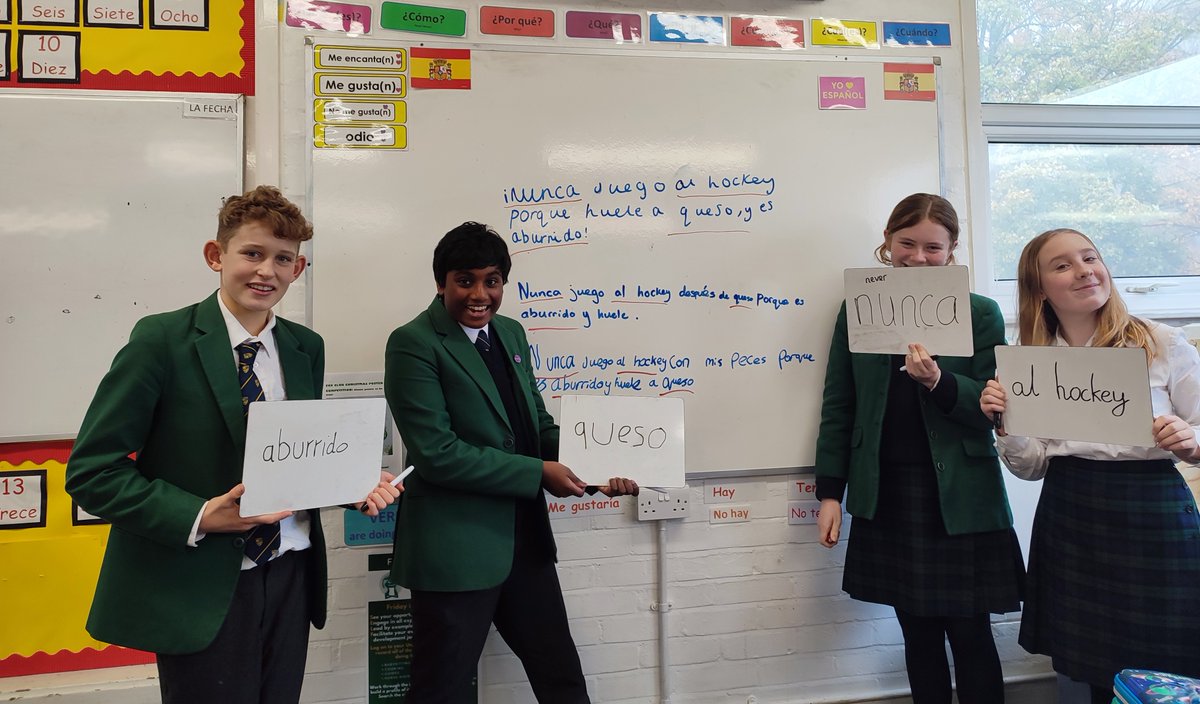 Seis
Siete
Ocho
10
Diez
¿Cómo?
¿Por qué?
¿Qué?
¿Cuándo?
LA FECHA
Me encanta(n)
Me gusta(n)
No me gusta(n)
odio
YO
ESPAÑOL
¡Nunca juego al hockey
porque huele a queso, y es
aburrido!
Nunca juego al hockey después de queso porque es
aburrido y huele.
Nunca juego al hockey con mis peces porque
es aburrido y huele a queso
never
nunca
al hockey
aburrido
queso
13
rece
Me gustaría
Hay
No hay
Ten
No te
are doing